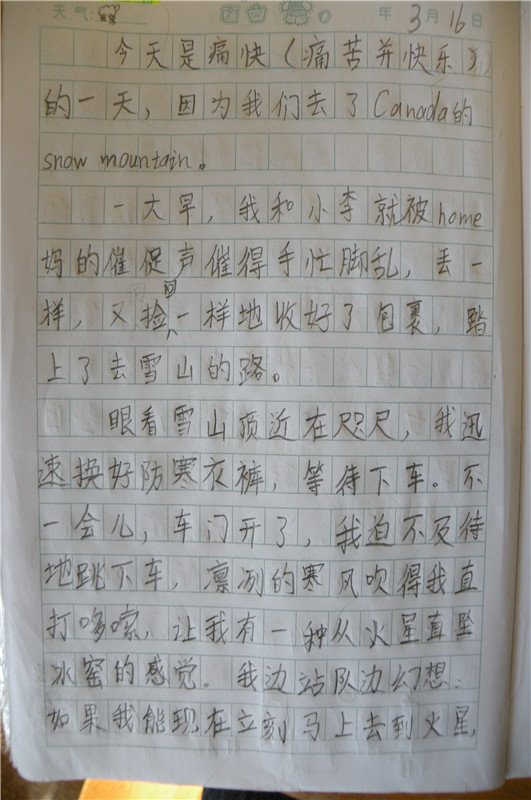 天气: 年 3月 16日
今天是痛快（痛苦并快乐）
的一天，因为我们去了Canada的
snow mountain。
一大早，我和小李就被home
妈的催促声催得手忙脚乱，丢一
样，又捡回一样地收好了包裹，踏
上了去雪山的路。
眼看雪山顶近在咫尺，我迅
速换好防寒衣裤，等待下车。不
一会儿，车门开了，我迫不及待
地跳下车，凛冽的寒风吹得我直
打哆嗦，让我有一种从火星直坠
冰窖的感觉。我边站队边幻想：
如果我能现在立刻马上去到火星，